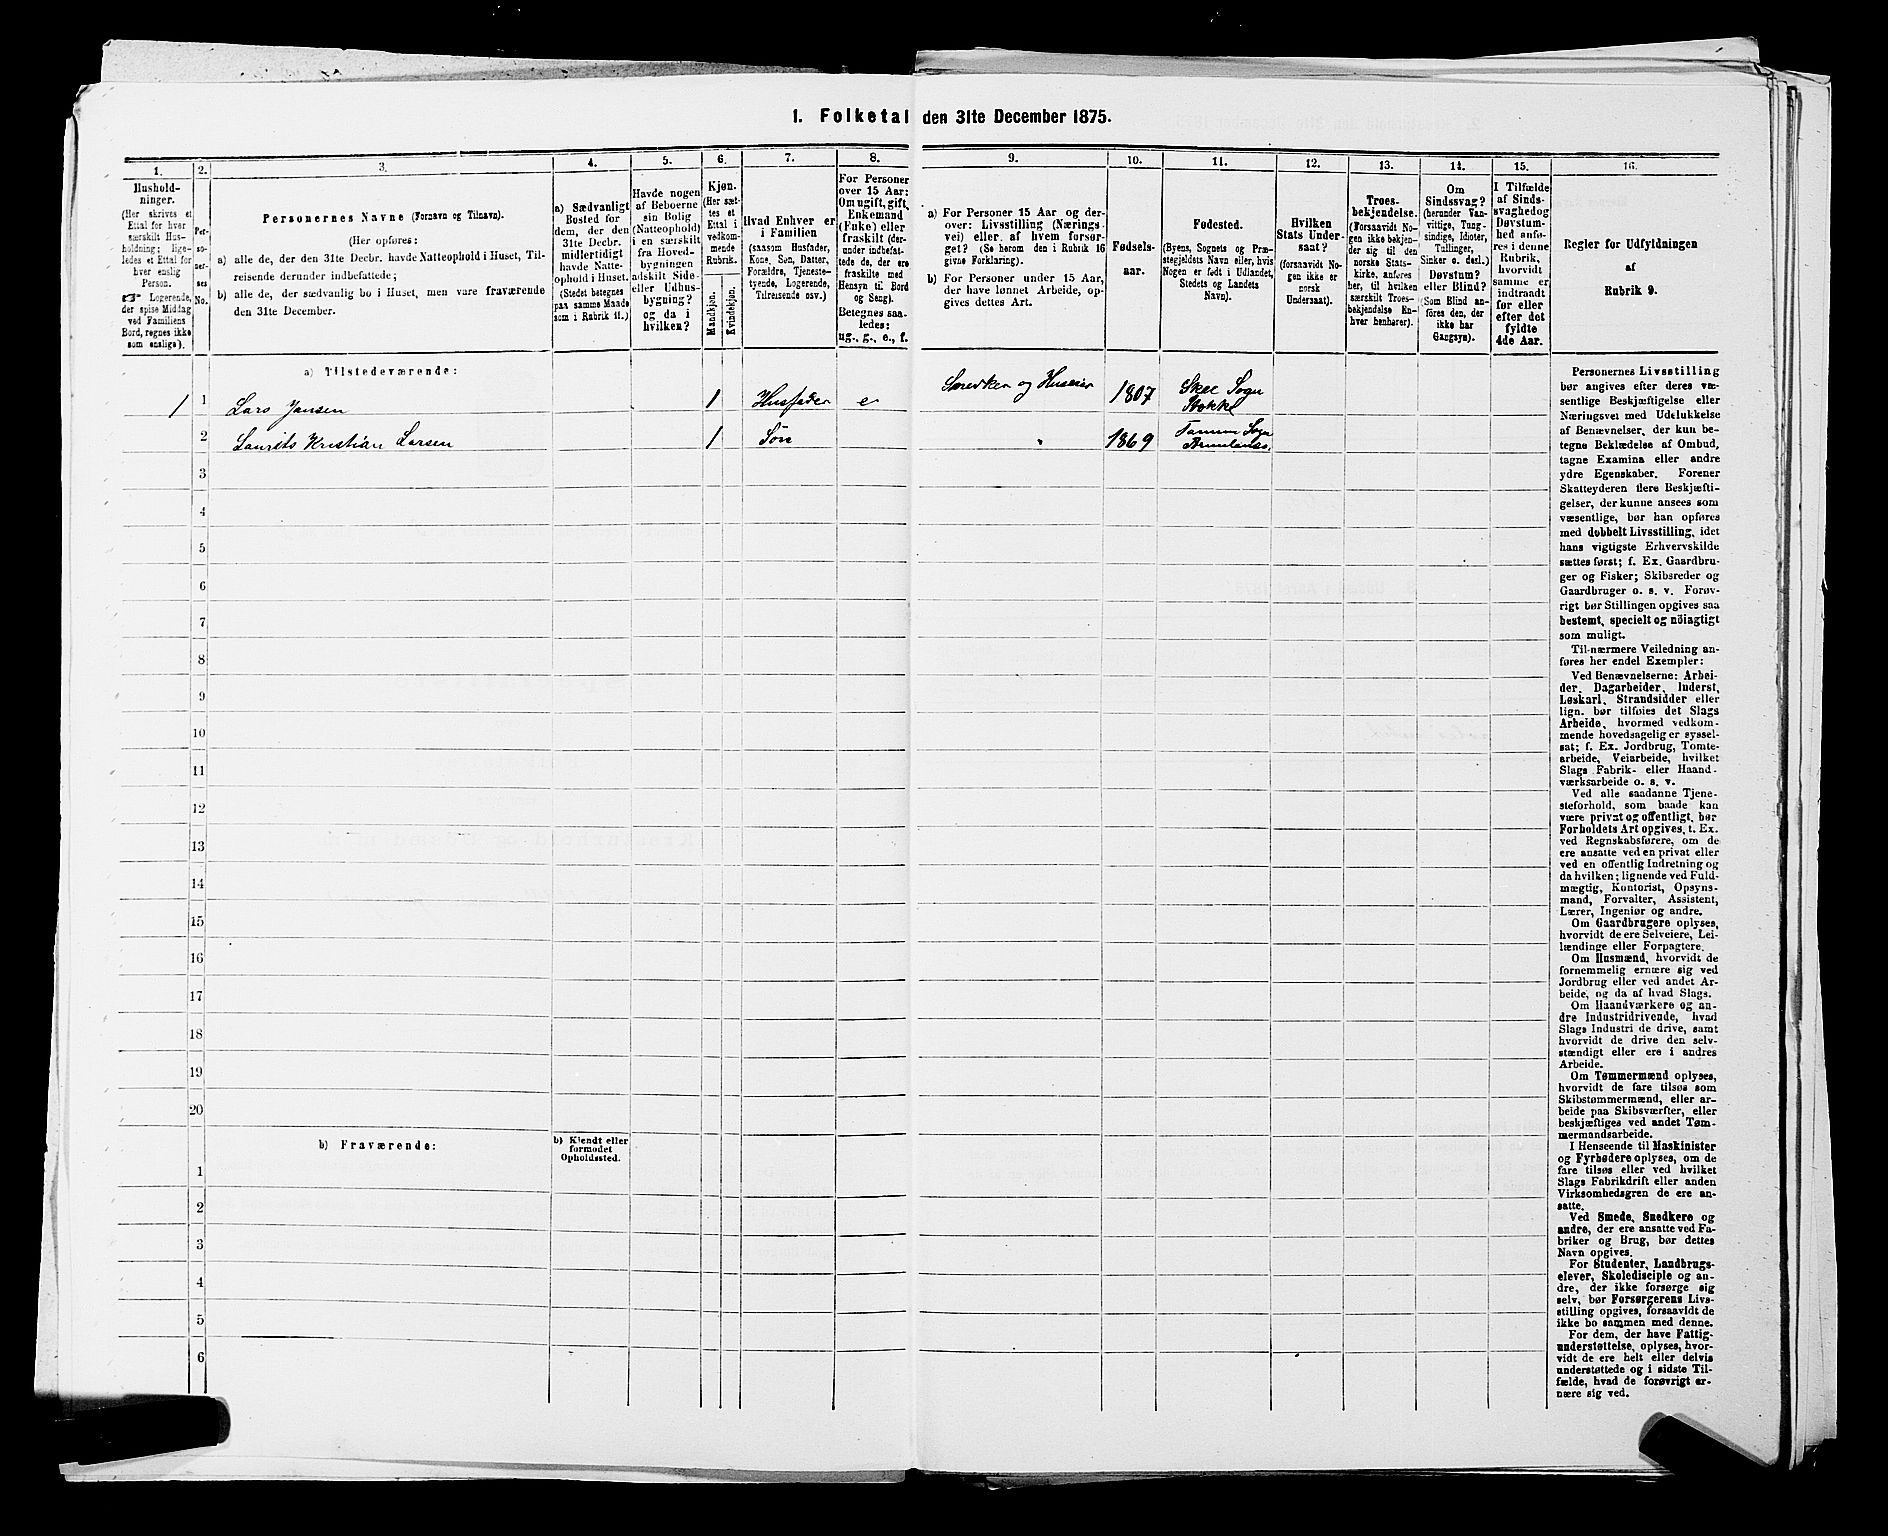 1. Folketal den 31te December 1875.
1.
2.
3.
4.
5.
6.
7.
8.
9.
10.
11.
12.
13.
14.
15.
16.
Hushold-
ninger.
(Her skrives et
Ettal for hver
særskilt Hus-
holdning; lige-
ledes et Ettal for
hver enslig
Person.
☞ Logerende,
der spise Middag
ved Familiens
Bord, regnes ikke
som enslige).
Per-
so-
ner-
nes
No.
Personernes Navne (Fornavn og Tilnavn).
(Her opføres:
a) alle de, der den 31te Decbr. havde Natteophold i Huset, Til-
reisende derunder indbefattede;
b) alle de, der sædvanlig bo i Huset, men vare fraværende
den 31te December.
a) Sædvanligt
Bosted for
dem, der den
31te Decbr.
midlertidigt
havde Natte-
ophold i Huset.
(Stedet betegnes
paa samme Maade
som i Rubrik 11.)
Havde nogen
af Beboerne
sin Bolig
(Natteophold)
i en særskilt
fra Hoved-
bygningen
adskilt Side-
eller Udhus-
bygning?
og da i
hvilken?
Kjøn.
(Her sæt-
tes et
Ettal i
vedkom-
mende
Rubrik.
Mandkjøn.
Kvindekjøn.
Hvad Enhver er
i Familien
(saasom Husfader,
Kone, Søn, Datter,
Forældre, Tjeneste-
tyende, Logerende,
Tilreisende osv.)
For Personer
over 15 Aar:
Om ugift, gift,
Enkemand
(Enke) eller
fraskilt (der-
under indbefat-
tede de, der ere
fraskilte med
Hensyn til Bord
og Seng).
Betegnes saa-
ledes:
ug., g., e., f.
a) For Personer 15 Aar og der-
over: Livsstilling (Nærings-
vei) eller af hvem forsør-
get? (Se herom den i Rubrik 16
givne Forklaring).
b) For Personer under 15 Aar,
der have lønnet Arbeide, op-
gives dettes Art.
Fødsels-
aar.
Fødested.
(Byens, Sognets og Præ-
stegjeldets Navn eller, hvis
Nogen er født i Udlandet,
Stedets og Landets
Navn).
Hvilken
Stats Under-
saat?
(forsaavidt No-
gen ikke er
norsk
Undersaat).
Troes-
bekjendelse.
(Forsaavidt No-
gen ikke bekjen-
der sig til den
norske Stats-
kirke, anføres
her, til hvilken
særskilt Troes-
bekjendelse En-
hver henhører).
Om
Sindssvag?
(herunder Van-
vittige, Tung-
sindige, Idioter,
Tullinger,
Sinker o. desl.)
Døvstum?
eller Blind?
(Som Blind an-
føres den, der
ikke har
Gangsyn).
I Tilfælde
af Sinds-
svaghed og
Døvstum-
hed anfø-
res i denne
Rubrik,
hvorvidt
samme er
indtraadt
før eller
efter det
fyldte
4de Aar.
Regler for Udfyldningen
af
Rubrik 9.
a) Tilstedeværende:
1 1 Lars Jansen 1 Husfader e Snedker og Huseier 1807 Skee Sogn
Stokke
2 Laurits Kristian Larsen 1 Søn " 1869 Tamum Sogn
3
4
5
6
7
8
9
10
11
12
13
14
15
16
17
18
19
20
b) Fraværende:
b) Kjendt eller
formodet
Opholdssted.
1
2
3
4
5
6
Personernes Livsstilling
bør angives efter deres væ-
sentlige Beskjæftigelse eller
Næringsvei med Udelukkelse
af Benævnelser, der kun be-
tegne Beklædelse af Ombud,
tagne Examina eller andre
ydre Egenskaber. Forener
Skatteyderen flere Beskjæfti-
gelser, der kunne ansees som
væsentlige, bør han opføres
med dobbelt Livsstilling, idet
hans vigtigste Erhvervskilde
sættes først; f. Ex. Gaardbru-
ger og Fisker; Skibsreder og
Gaardbruger o. s. v. Forøv-
rigt bør Stillingen opgives saa
bestemt, specielt og nöiagtigt
som muligt.
Til nærmere Veiledning an-
føres her endel Exempler:
Ved Benævnelserne: Arbei-
der, Dagarbeider, Inderst,
Løskarl, Strandsidder eller
lign. bør tilføies det Slags
Arbeide, hvormed vedkom-
mende hovedsagelig er syssel-
sat; f. Ex. Jordbrug, Tomte-
arbeide, Veiarbeide, hvilket
Slags Fabrik- eller Haand-
værksarbeide o. s. v.
Ved alle saadanne Tjene-
steforhold, som baade kan
være privat og offentligt, bør
Forholdets Art opgives, t. Ex.
ved Regnskabsførere, om de
ere ansatte ved en privat eller
ved en offentlig Indretning og
da hvilken; lignende ved Fuld-
mægtig, Kontorist, Opsyns-
mand, Forvalter, Assistent,
Lærer, Ingeniør og andre.
Om Gaardbrugere oplyses,
hvorvidt de ere Selveiere, Lei-
lændinge eller Forpagtere.
Om Husmænd, hvorvidt de
fornemmelig ernære sig ved
Jordbrug eller ved andet Ar-
beide, og da af hvad Slags.
Om Haandværkere og an-
dre Industridrivende, hvad
Slags Industri de drive, samt
hvorvidt de drive den selv-
stændigt eller ere i andres
Arbeide.
Om Tømmermænd oplyses,
hvorvidt de fare tilsøs som
Skibstømmermænd, eller ar-
beide paa Skibsværfter, eller
beskjæftiges ved andet Tøm-
mermandsarbeide.
I Henseende til Maskinister
og Fyrbødere oplyses, om de
fare tilsøs eller ved hvilket
Slags Fabrikdrift eller anden
Virksomhedsgren de ere an-
satte.
Ved Smede, Snedkere og
andre, der ere ansatte ved Fa-
briker og Brug, bør dettes
Navn opgives.
For Studenter, Landbrugs-
elever, Skoledisciple og an-
dre, der ikke forsørge sig
selv, bør Forsørgerens Livs-
stilling opgives, forsaavidt de
ikke bo sammen med denne.
For dem, der have Fattig-
understøttelse, oplyses, hvor-
vidt de ere helt eller delvis
understøttede og i sidste Til-
fælde, hvad de forøvrigt er-
nære sig ved.